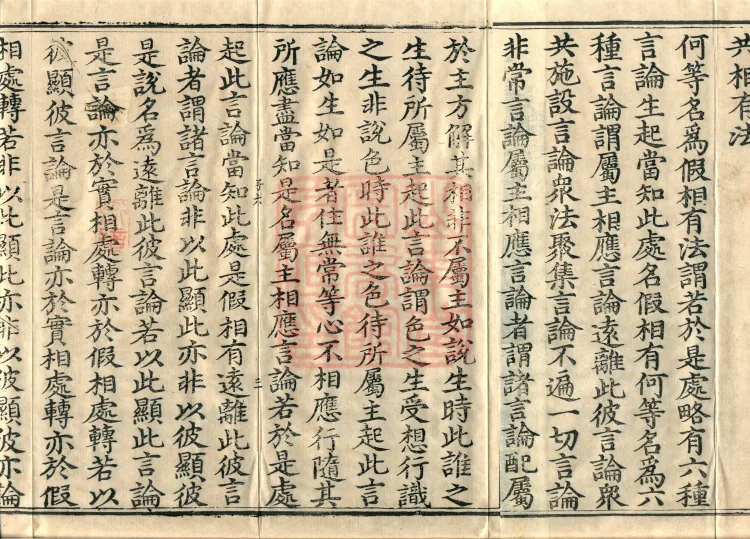 共相有法
何等名為假相有法謂若於是處略有六種
言論生起當知此處名假相有何等名為六
種言論謂屬主相應言論遠離此彼言論衆
共施設言論衆法聚集言論不遍一切言論
非常言論屬主相應言論者謂諸言論配屬
於主方解其相非不屬主如說生時此誰之
生待所屬主起此言論謂色之生受想行識
之生非說色時此誰之色待所屬主起此言
論如生如是者住無常等心不相應行隨其
所應盡當知是名屬主相應言論若於是處
起此言論當知此處是假相有遠離此彼言
論者謂諸言論非以此顯此亦非以彼顯彼
是說名為遠離此彼言論若以此顯此言論
是言論亦於實相處轉亦於假相處轉若以
彼顯彼言論是言論亦於實相處轉亦於假
相處轉若非以此顯此亦非以彼顯彼亦論